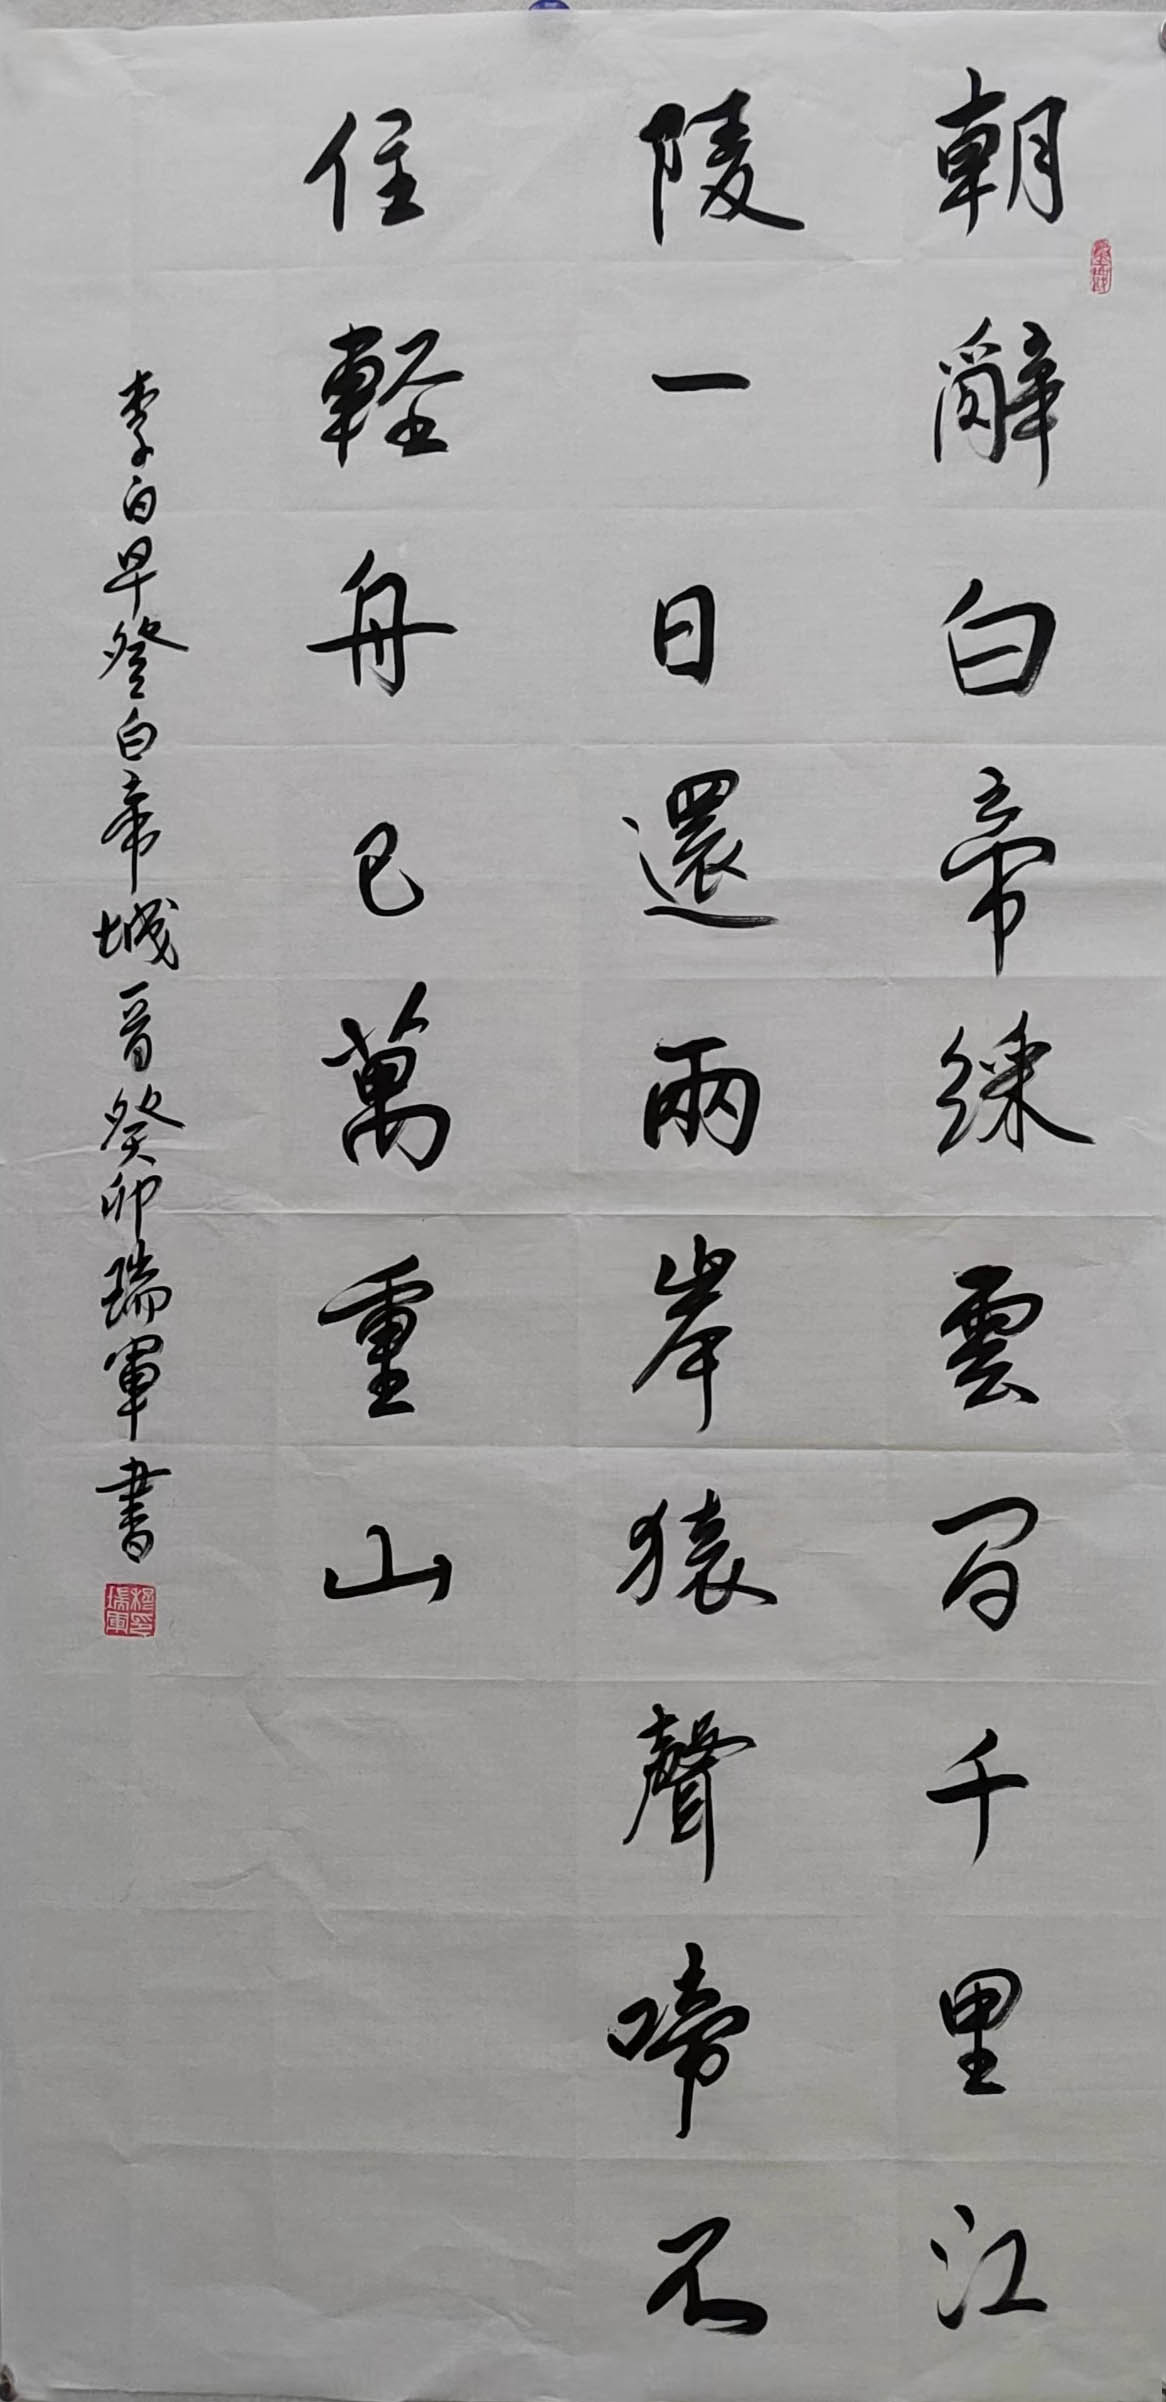 朝辭白帝綵雲間千里江
陵一日還兩岸猿聲啼不
住輕舟已萬重山
李白早發白帝城一首癸卯瑞軍書